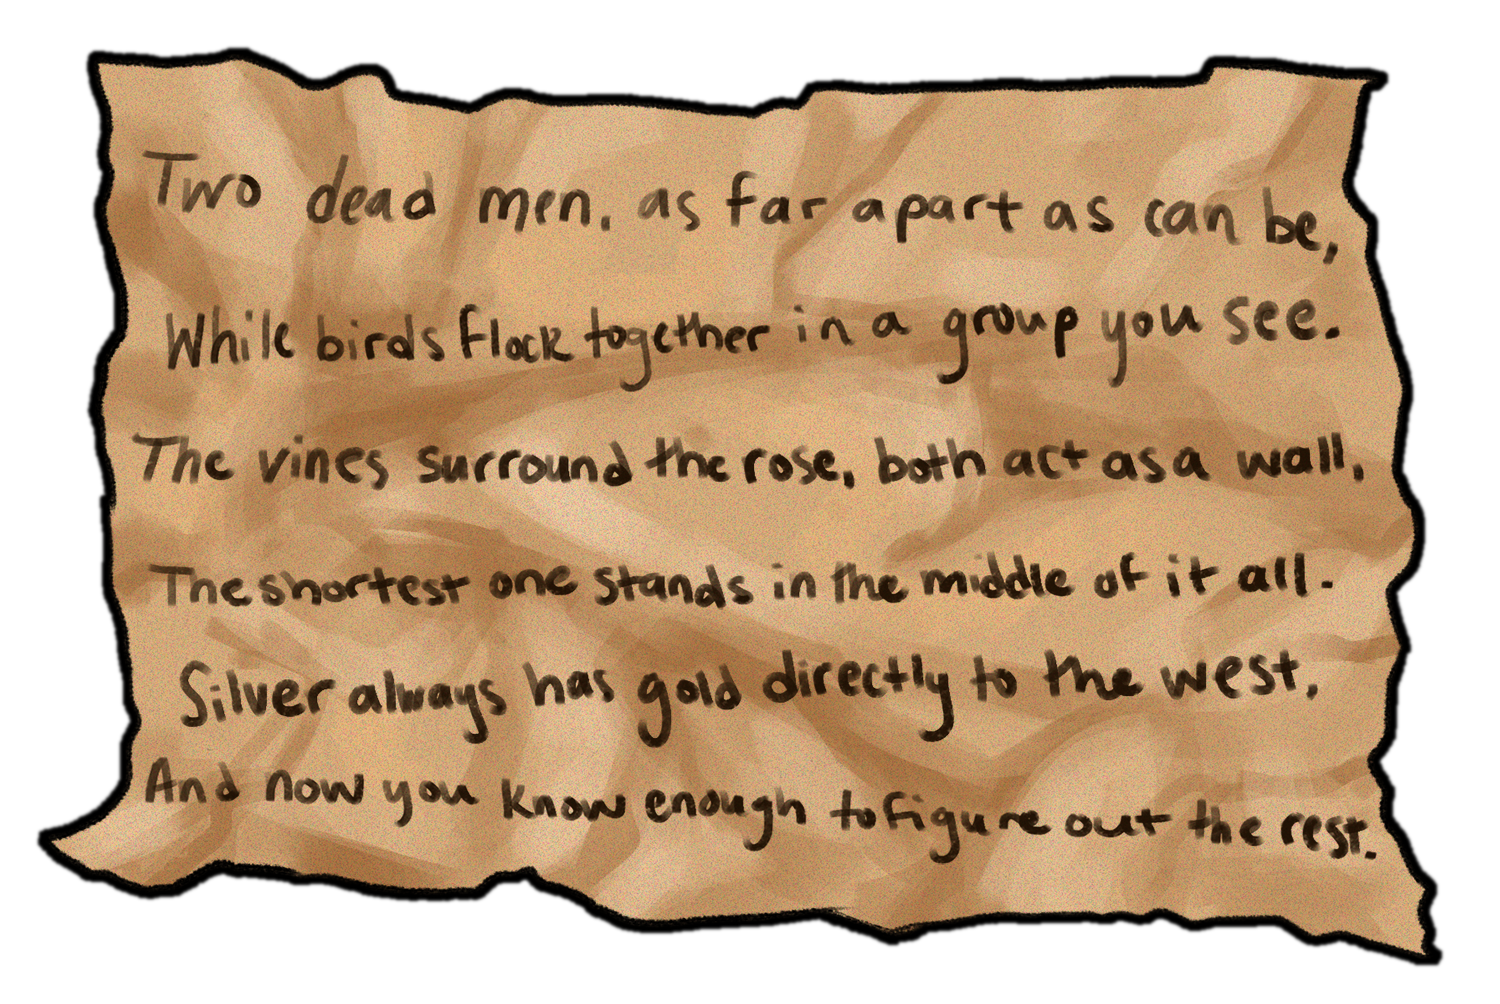 Two dead men, as far apart as can be,
While birds flock together in a group you see.
The vines surround the rose, both act as a wall,
The shortest one stands in the middle of it all.
Silver always has gold directly to the west,
And now you know enough to figure out the rest.